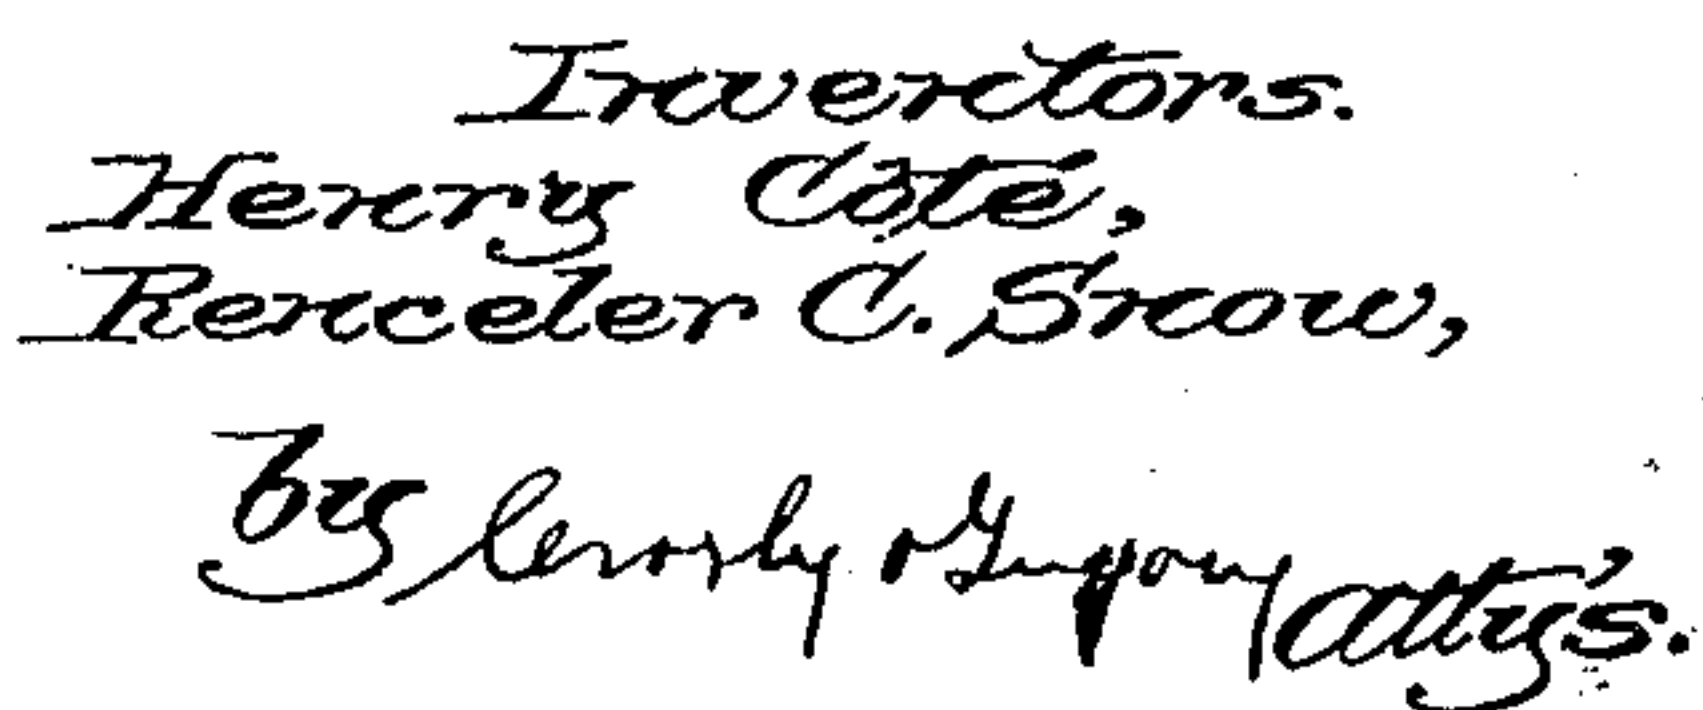 Inventors.
Henry Coté,
Renceler C. Snow,
by Crosby & Gregory Att'ys.